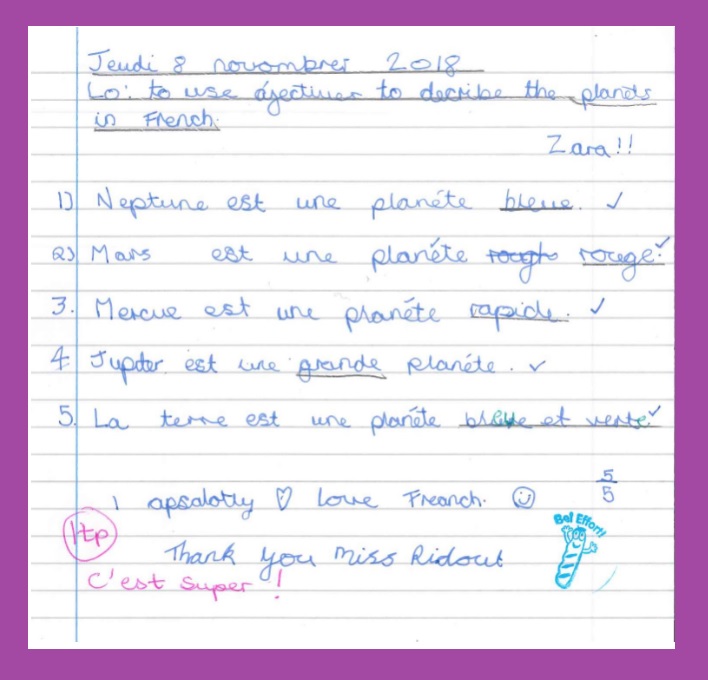 Jeudi 8 novombrer 2018
Lo: to use ajectives to decribe the planets
in French.
Zara!!
1) Neptune est une planéte bleue. ✓
2) Mars est une planéte rouge. ✓
3. Mercue est une planéte rapide. ✓
4. Jupiter est une grande planéte. ✓
5. La terre est une planéte bleue et verte ✓
5/5
I apsalotly ♡ love Freanch. ☺
Bel Effort!
1tp
Thank you Miss Ridout
C'est super!